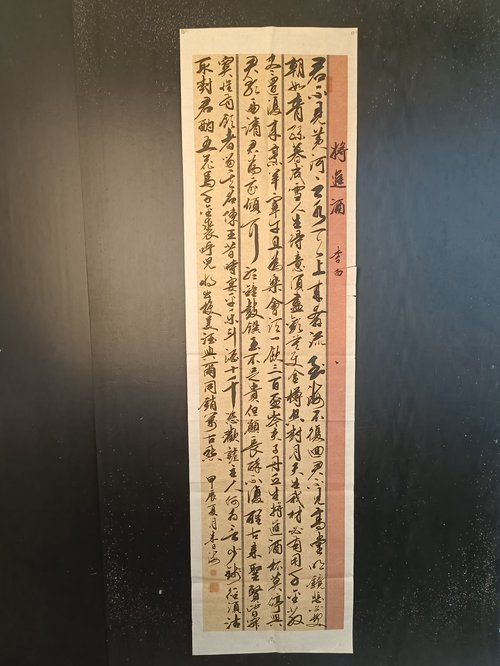 將進酒
李白
君不見黃河之水天上來奔流到海不復回君不見高堂明鏡悲白髮
朝如青絲暮成雪人生得意須盡歡莫使金樽空對月天生我材必有用千金散
盡還復來烹羊宰牛且為樂會須一飲三百盃岑夫子丹丘生將進酒杯莫停與
君歌一曲請君為我傾耳聽鐘鼓饌玉不足貴但願長醉不復醒古來聖賢皆寂
寞惟有飲者留其名陳王昔時宴平樂斗酒十千恣歡謔主人何為言少錢徑須沽
取對君酌五花馬千金裘呼兒將出換美酒與爾同銷萬古愁
甲辰夏月